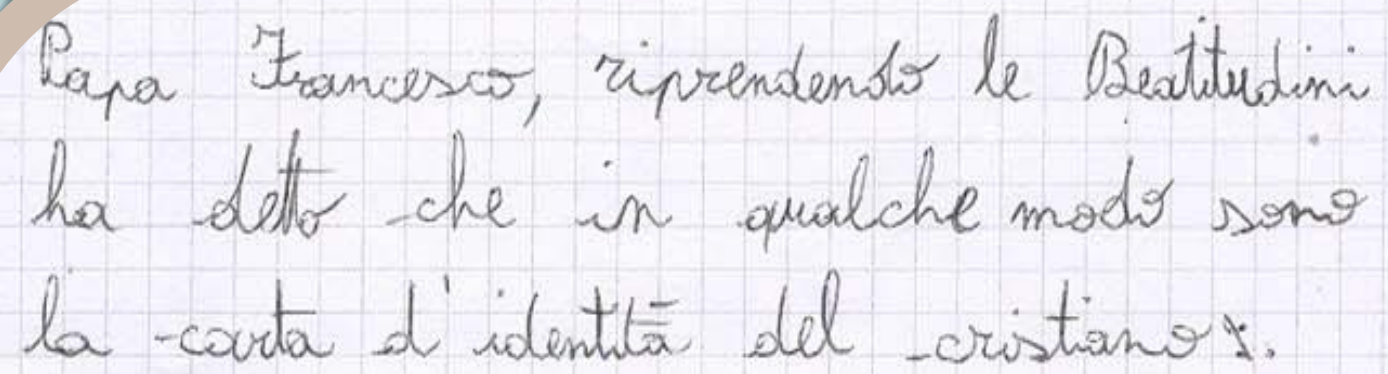 Papa Francesco, riprendendo le Beatitudini
ha detto che in qualche modo sono
la carta d'identità del cristiano.